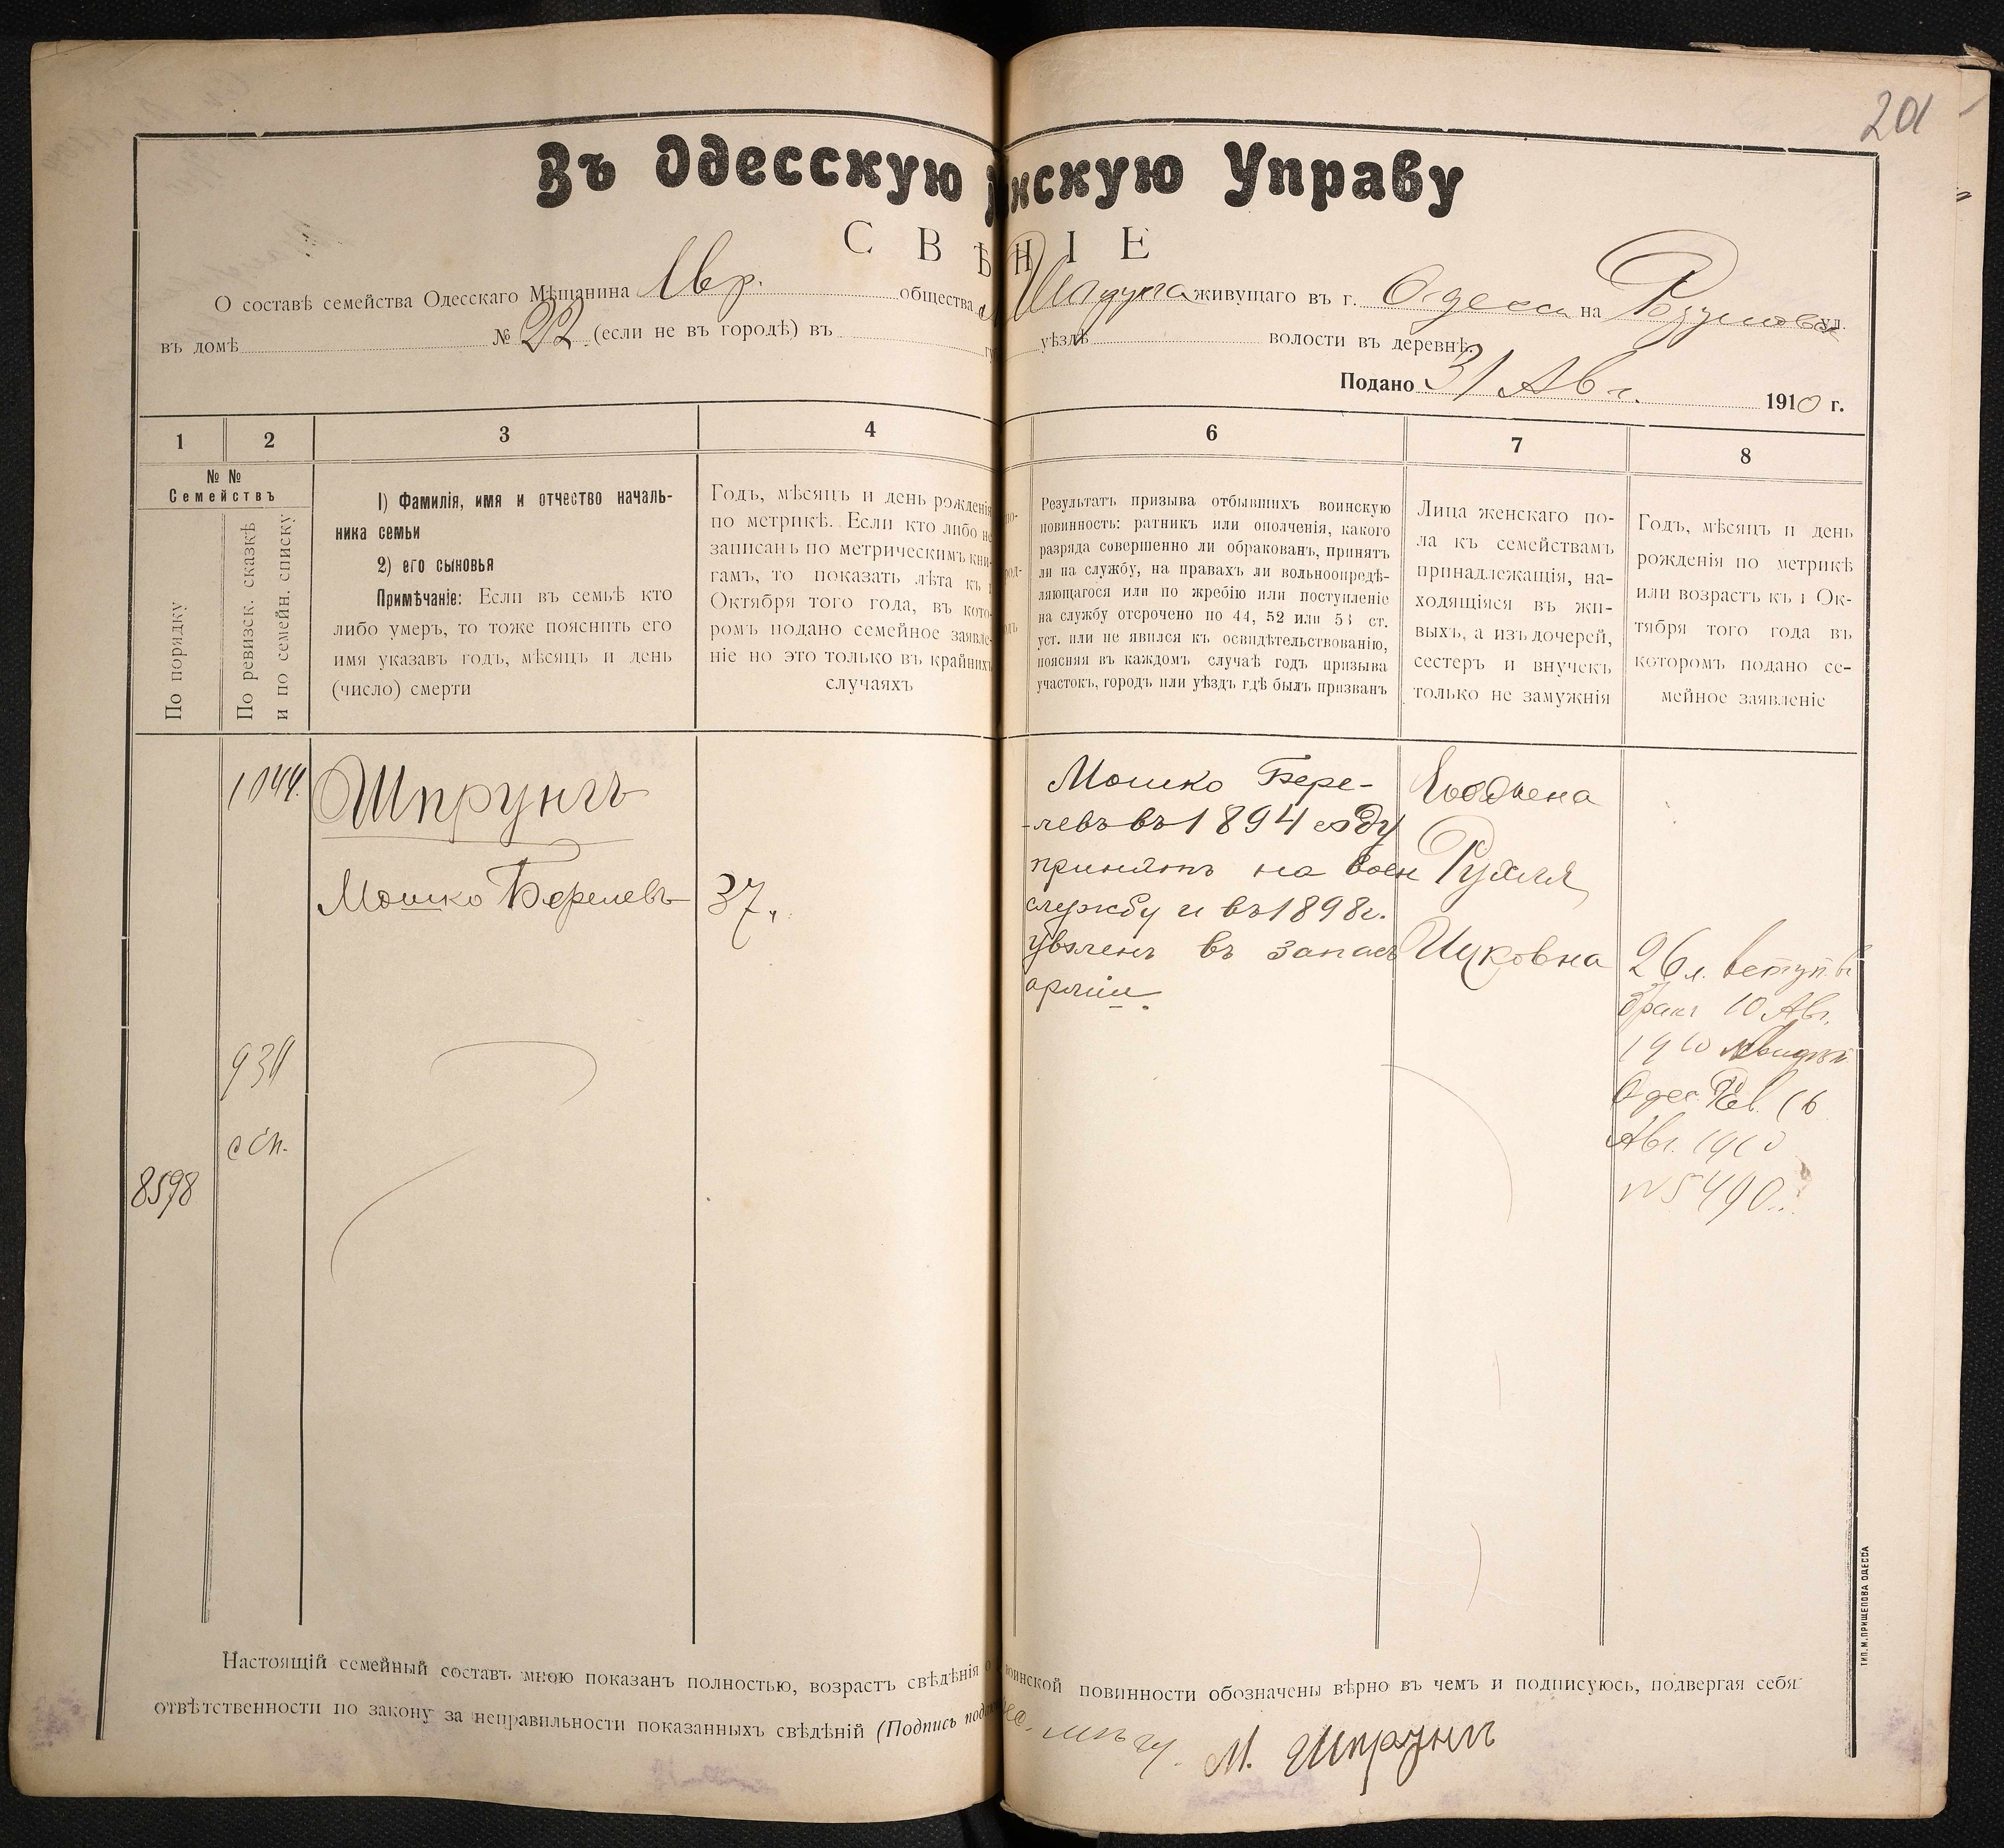 201
Въ Одесскую нскую Управу
СВѢНІЕ
О составѣ семейства Одесскаго Мѣщанина Евр. общества живущаго въ г. Одесса на ул.
въ домѣ № 22 (если не въ городѣ) въ уѣздѣ волости въ деревнѣ.
Подано 31 Авг. 1910 г.
1 2 3 4 6 7 8
№ №
Семействъ
По порядку
По ревизск. сказкѣ
и по семейн. списку
1) Фамилія, имя и отчество началь-
ника семьи
2) его сыновья
Примѣчаніе: Если въ семьѣ кто
либо умеръ, то тоже пояснить его
имя указавъ годъ, мѣсяцъ и день
(число) смерти
Годъ, мѣсяцъ и день рожденія
по метрикѣ. Если кто либо не
записанъ по метрическимъ кни-
гамъ, то показать лѣта къ 1
Октября того года, въ кото-
ромъ подано семейное заявле-
ніе но это только въ крайнихъ
случаяхъ
Результатъ призыва отбывшихъ воинскую
повинность: ратникъ или ополченія, какого
разряда совершенно ли обракованъ, принятъ
ли на службу, на правахъ ли вольноопредѣ-
ляющагося или по жребію или поступленіе
на службу отсрочено по 44, 52 или 53 ст.
уст. или не явился къ освидѣтельствованію,
поясняя въ каждомъ случаѣ годъ призыва
участокъ, городъ или уѣздъ гдѣ былъ призванъ
Лица женскаго по-
ла къ семействамъ
принадлежащія, на-
ходящіяся въ жи-
выхъ, а изъ дочерей,
сестеръ и внучекъ
только не замужнія
Годъ, мѣсяцъ и день
рожденія по метрикѣ
или возрастъ къ 1 Ок-
тября того года въ
которомъ подано се-
мейное заявленіе
1044.
Шпрунгъ
Мошко Берелевъ
37.
931
8598
Мошко Бере-
-левъ въ 1894 году
принятъ на воен
службу и въ 1898 г.
уволенъ въ запасъ
арміи.
жена
Рухля
Ицковна
26 л. вступ. въ
бракъ 10 Авг.
1910
Одес. 16
Авг. 1910
№ 5490
Настоящій семейный составъ мною показанъ полностью, возрастъ свѣдѣнія о воинской повинности обозначены вѣрно въ чемъ и подписуюсь, подвергая себя
отвѣтственности по закону за неправильности показанныхъ свѣдѣній (Подпись М. Шпрунгъ
ТИП. М. ПРИЩЕПОВА ОДЕССА